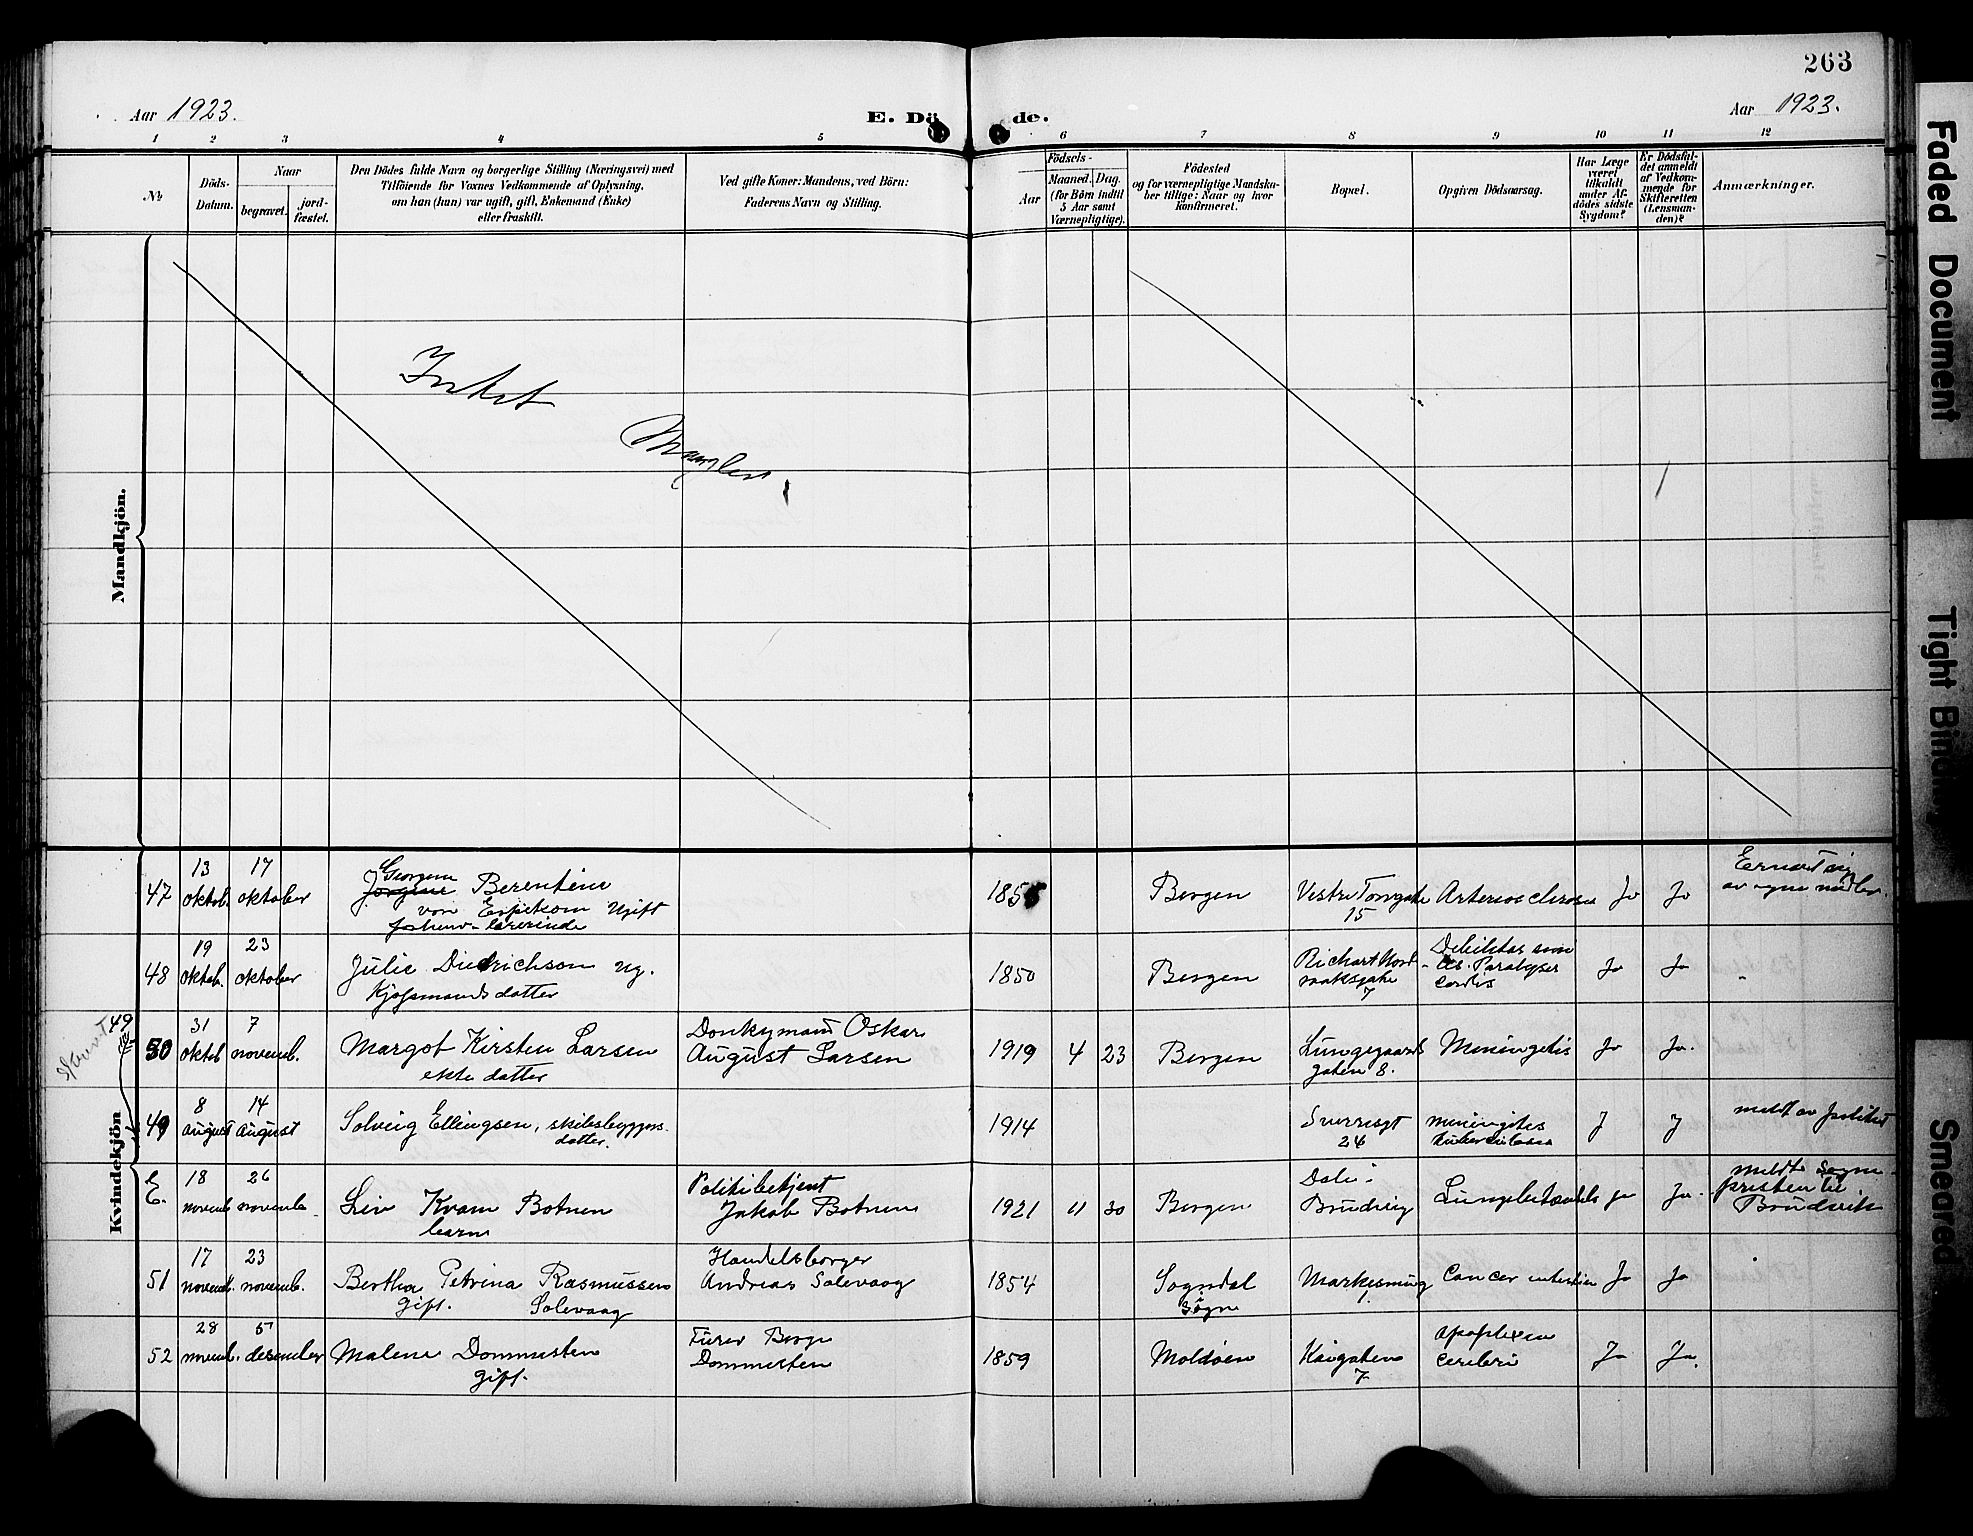 263
Aar 1923.
E. Dö de.
Aar 1923.
1 2 3 4 5 6 7 8 9 10 11 12
No
Döds-
Datum.
Naar
begravet.
jord-
fæstet.
Den Dödes fulde Navn og borgerlige Stilling (Næringsvei) med
Tilföiende for Voxnes Vedkommende af Oplysning,
om han (hun) var ugift, gift, Enkemand (Enke)
eller fraskilt.
Ved gifte Koner: Mandens, ved Börn:
Faderens Navn og Stilling.
Födsels-
Aar
Maaned. Dag.
(for Börn indtil
5 Aar samt
Værnepligtige).
Födested
og for værnepligtige Mandska-
ber tillige: Naar og hvor
konfirmeret.
Bopæl.
Opgiven Dödsaarsag.
Har Læge
været
tilkaldt
under Af-
dödes sidste
Sygdom?
Er Dödsfal-
det anmeldt
af Vedkom-
mende for
Skifteretten
(Lensman-
den)?
Anmærkninger.
Mandkjön.
Intet
Mangler
Kvindekjön
47
13
oktob.
17
oktober
Georgine
Jorgine Berentine
von Erpekom Ugift
forhenv. lærerinde
Bergen
Vestre Torvgate
15
Arteriosclerose
Ja
Ja
48
19
oktob.
23
oktober
Julie Diedrichson ug.
Kjøpmandsdatter
1850
Bergen
Richart Nord-
raaksgate
7
Cordis
Ja
Ja
49
50
31
oktob
7
novemb.
Margot Kirsten Larsen
ekte datter
Donkymand Oskar
August Larsen
1919 4 23
Bergen
Lungegaards
gaten 8.
Meningitis
Ja
Ja.
49
8
august
14
august
Solveig Ellingsen, skibsbyggers-
datter.
1914
Sverresgt
24
meningitis
tuberculosa
J
J
E.
18
novemb
26
novemb.
Liv Kvam Botnen
barn
Politibetjent
Jakob Botnen
1921 11 30
Bergen
Dale i
Bruvik
Lungebetændelse
Ja
Ja.
meldt Sogne-
presten til
Bruvik
51
17
novemb.
23
novemb.
Bertha Petrina Rasmussen
gift. Solevaag
Handelsborger
Andreas Solevaag
1854
Sogndal
Sogn
Markesmug
1.
Cancer intestin
Ja
Ja
52
28
novemb.
5
desember
Malene Dommesten
gift.
Fürer Berge
Dommesten
1859
Moldøen
Kaigaten
7
Apoplexia
cerebri
Ja
Ja.
Faded Document
Tight Bindin
Smeared